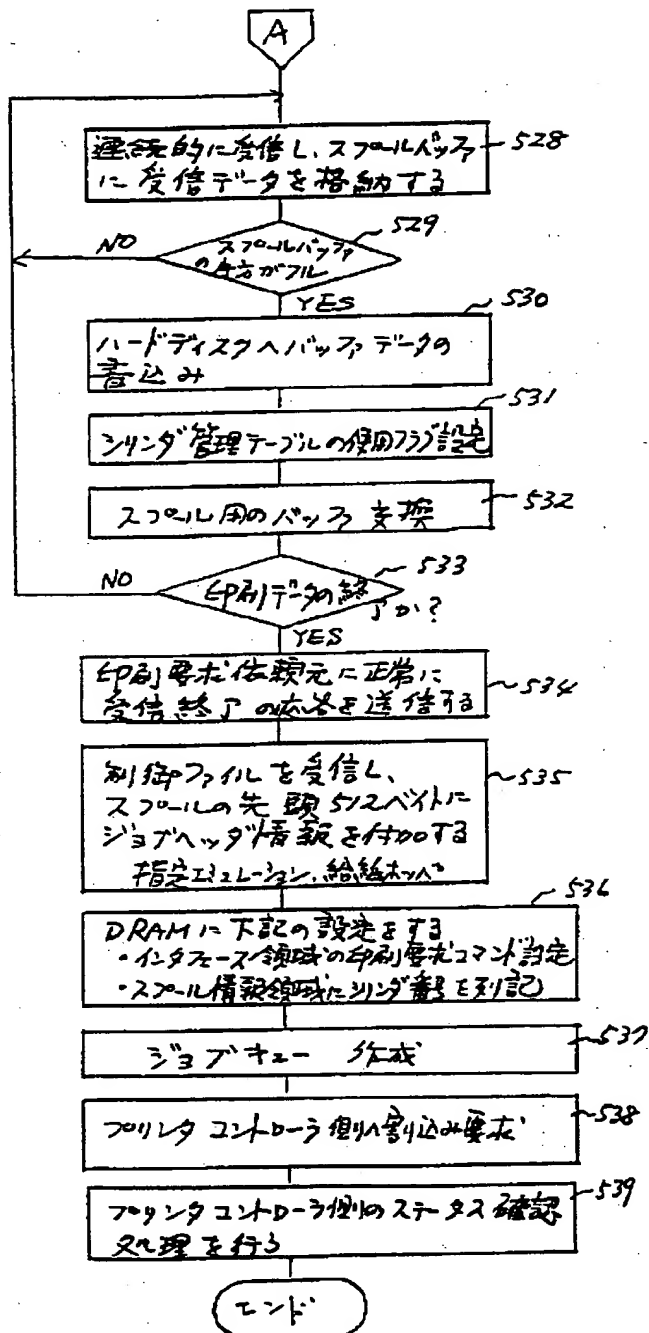 A
連続的に受信し、スプールバッファ
に受信データを格納する
528
529
スプールバッファ
の片方がフル
NO
YES
530
ハードディスクへバッファデータの
書込み
531
シリンダ管理テーブルの使用フラグ設定
スプール用のバッファ交換
532
533
印刷データの終
了か?
NO
YES
印刷要求依頼元に正常に
受信終了の応答を送信する
534
制御ファイルを受信し、
スプールの先頭512バイトに
ジョブヘッダ情報を付加する
指定エミュレーション、給紙ホッパ
535
536
DRAMに下記の設定をする
・インタフェース領域の印刷要求コマンド設定
・スプール情報領域にシリンダ番号を列記
ジョブキュー 作成
537
プリンタコントローラ側へ割り込み要求
538
539
プリンタコントローラ側のステータス確認
処理を行う
エンド